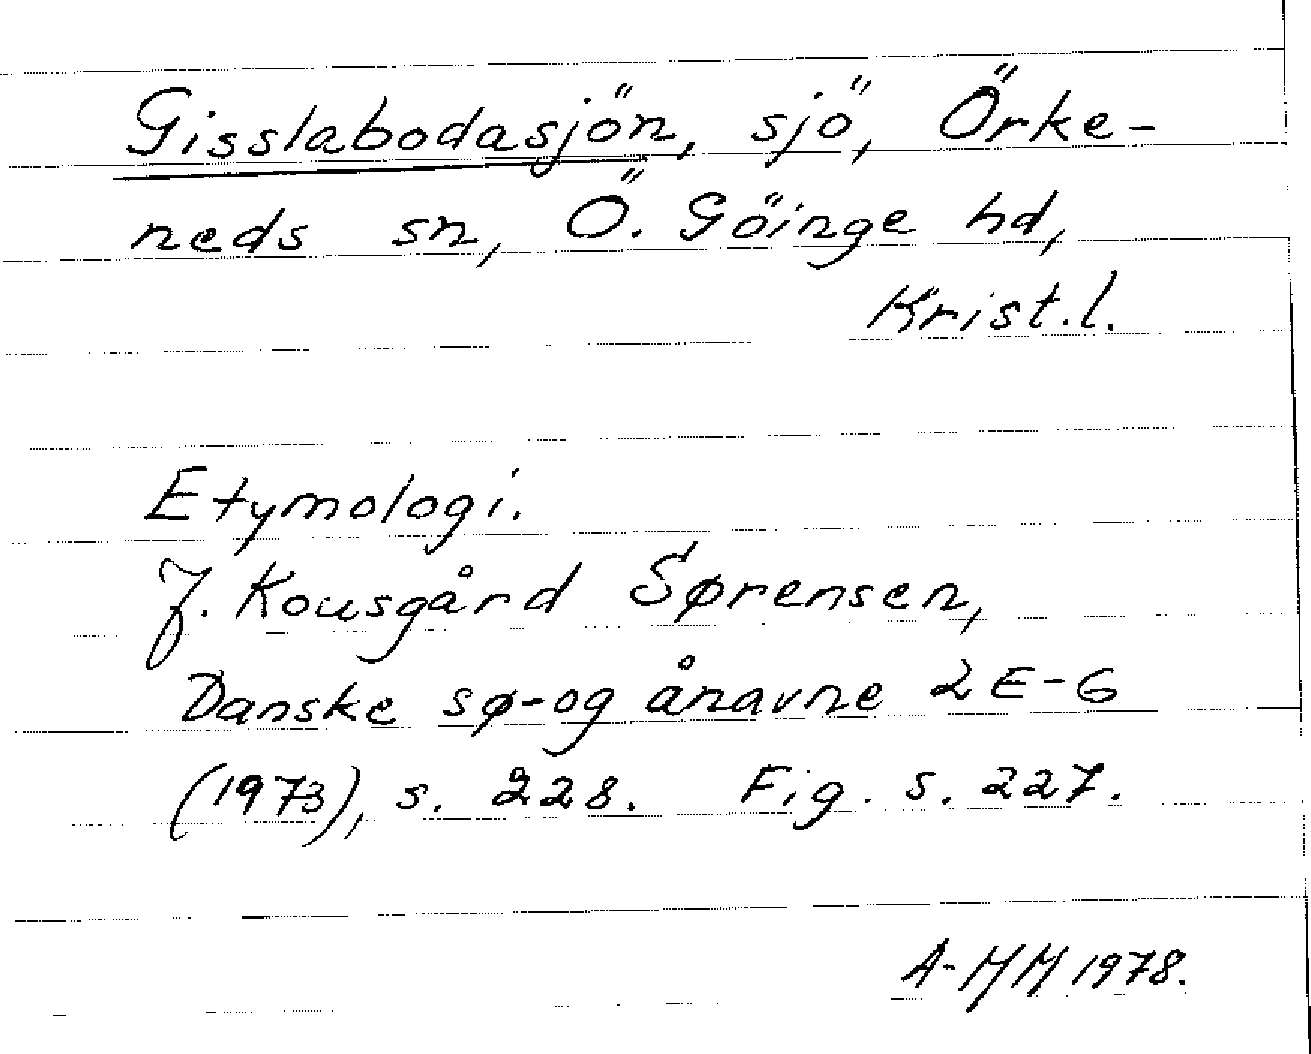 Gisslabodasjön, sjö, Örke-
neds sn, Ö. Göinge hd,
Krist.l.
Etymologi.
J. Kousgård Sørensen,
Danske sø- og ånavne 2 E-G
(1973), s. 228. Fig. s. 227.
A-MM 1978.